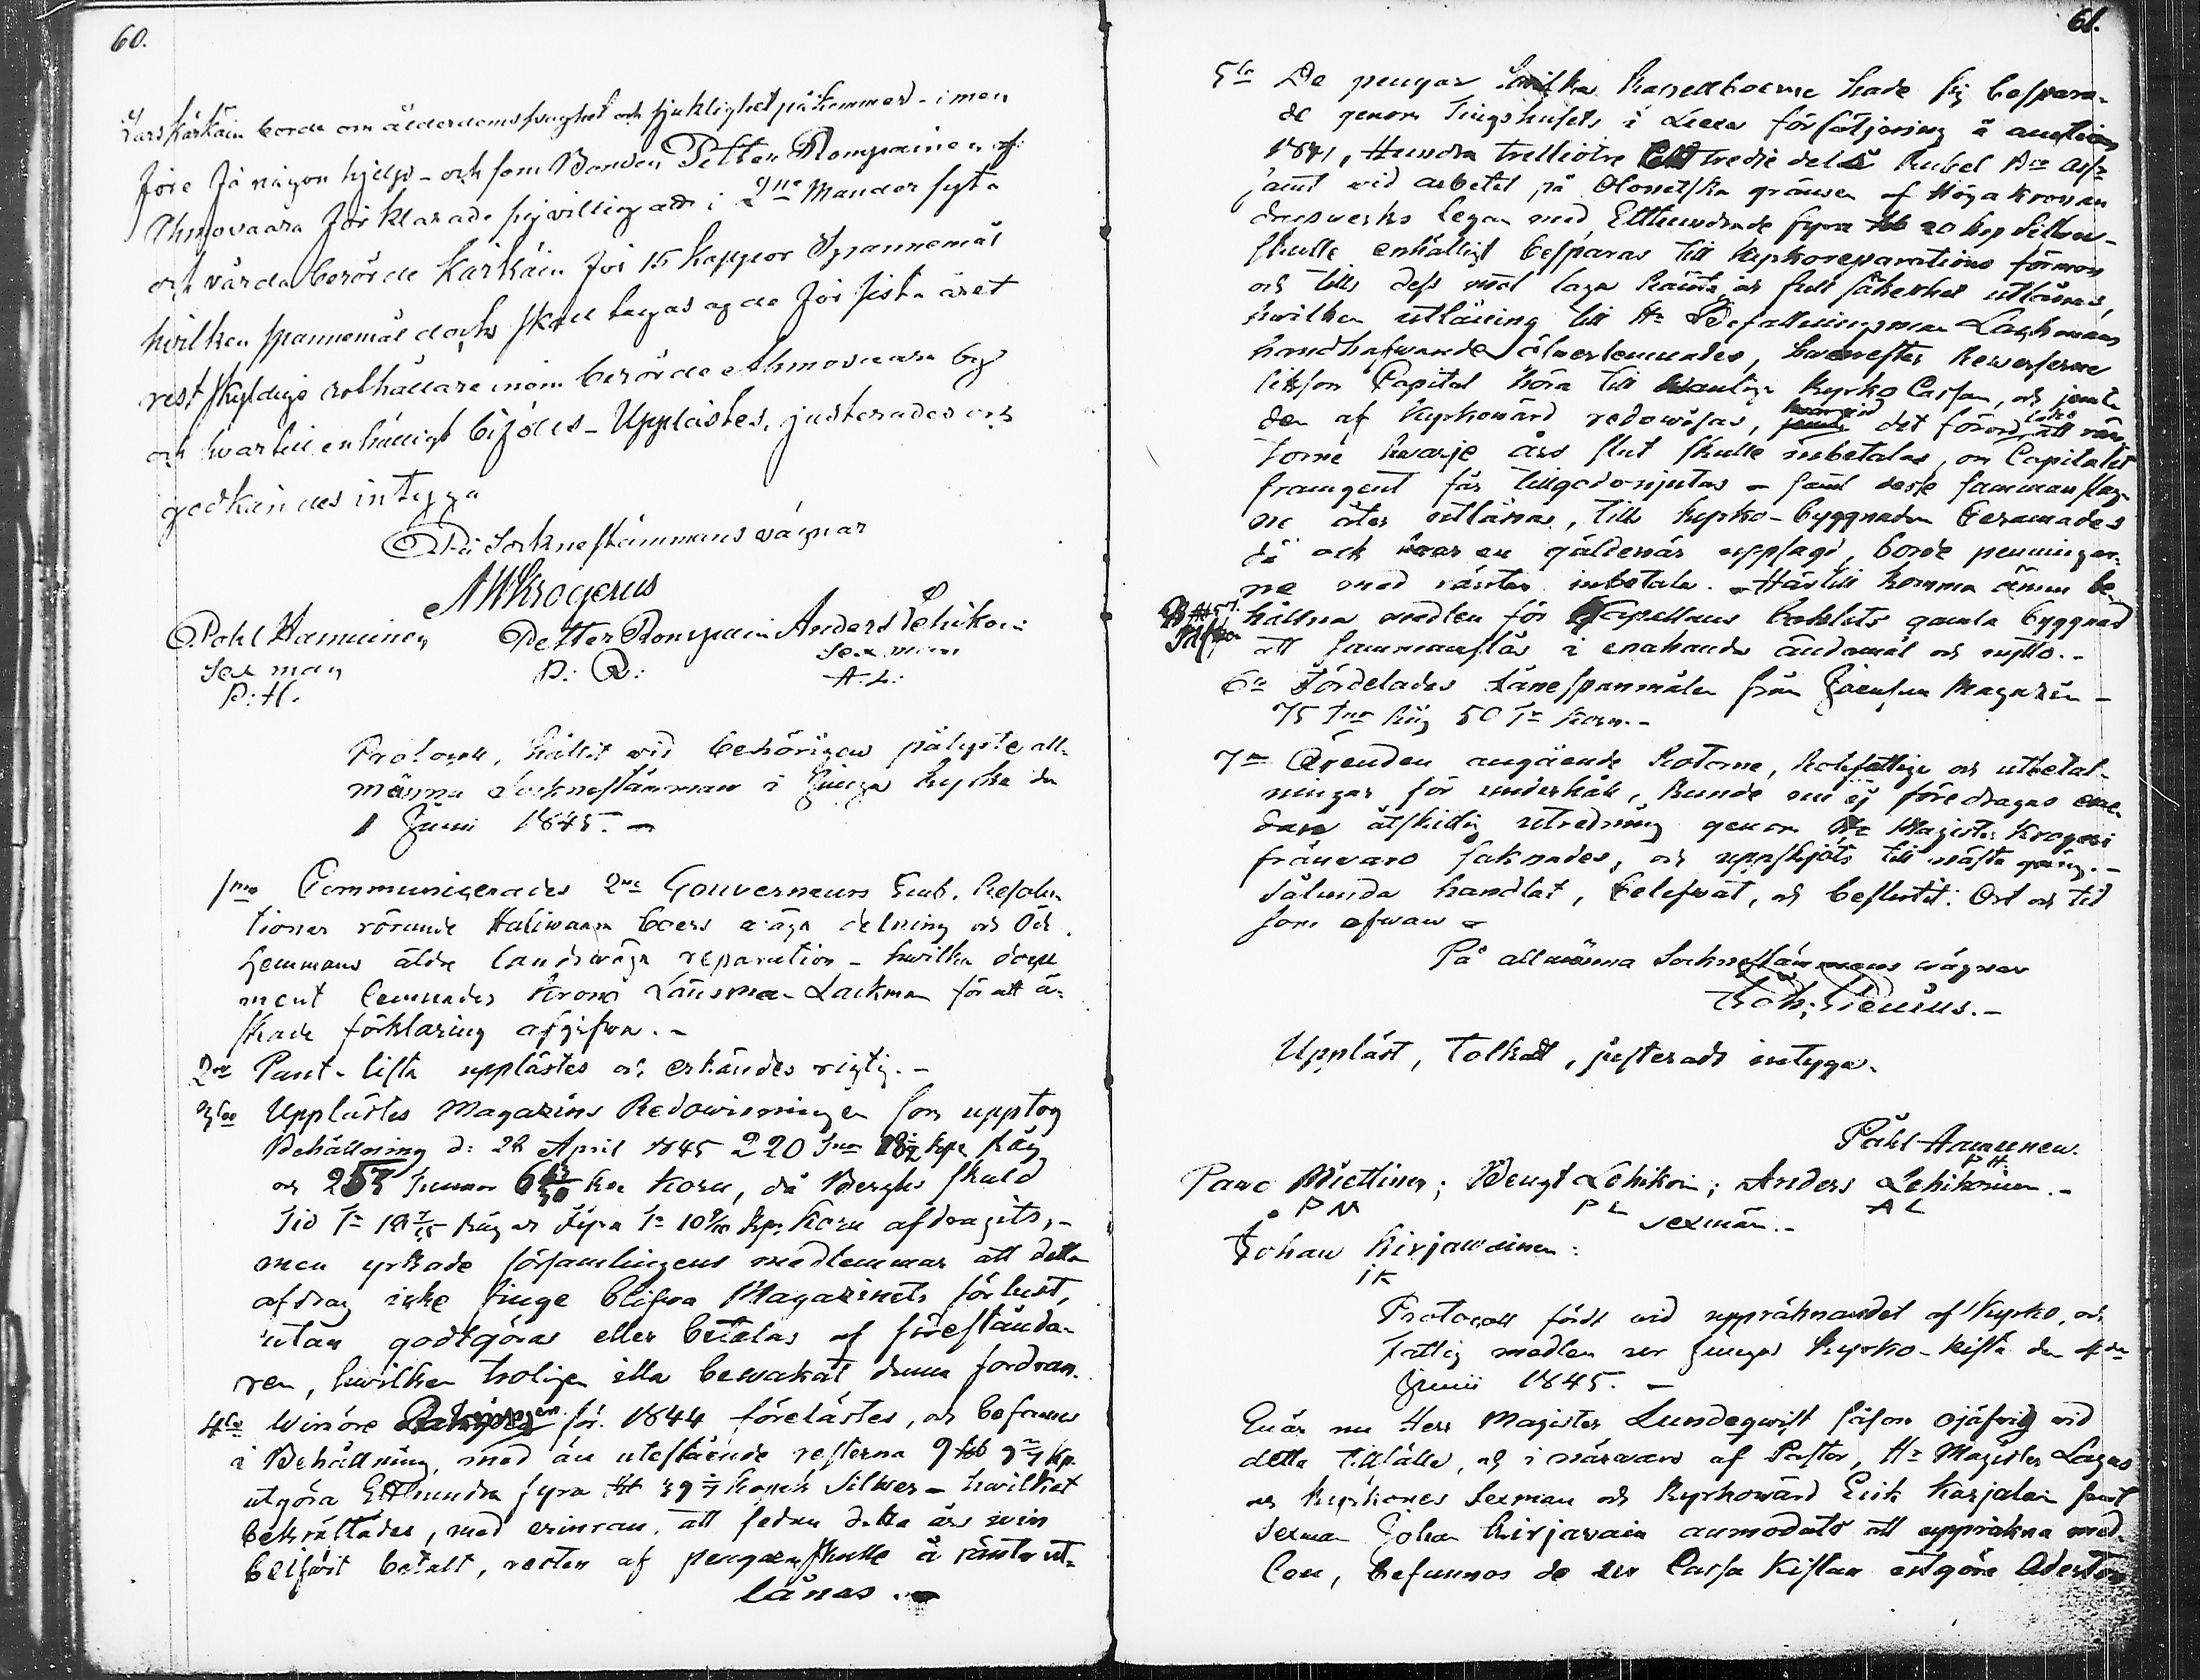 60.
Lars Kärkäin borde om ålderdomsswaghet och sjuklighet påkommer - i mon
före få någon hjelp - och som Bonden Petter Rompainen af
Ahmovaara förklarade sig villig att i 2ne Månader syta
och vårda berörde Kärkäin för 15 kappor Spannemål
hvilken spannemål dock skall tagas af de för sista året
restskyldige rothållare inom berörde Ahmovaara by
och hvartill enhälligt bifölls - Upplästes, justerades och
godkändes intyga
På Sockne stämmans vägnar
A W Krogerus
Påhl Hamuinen Petter Rompain Anders Lehikoin
Sex man P: R: Sex man
P: H. A: L:
Protocoll, hållit vid behörigen pålyste all-
männa Sockne stämman i Juuga kyrka den
1 Junii 1845. -
1mo Communicerades 2ne Gouverneurs Embt. Resolu-
tioner rörande Haliwaara boers wäga delning och
hemmans äldre landswäga reparation - hwilka docu
ment lemnades Krono Länsman Lackman för att ä-
skade förklaring afgifwa. -
2do Pant-lista upplästes och erkändes rigtig. -
3tio Upplästes Magazins Redowisningen som upptog
Behållning d: 28 April 1845 220 Tnr 18½ kpr Råg
och 257 Tunnor kpr Korn, då Berghs skuld
Tio Tr Råg och Fyra Tr 10 kpr Korn afdragits, -
men yrkade församlingens medlemmar att detta
afdrag icke finge blifwa Magazinets förlust,
utan godtgöras eller betalas af föreståndа-
ren, hwilken troligen illa bewakat denna fordran.
4to Winöre för 1844 förelästes, och befanns
i Behållning, med än utestående resterna 9
utgöra Etthundra fyra Kopek Silfwer - hwilket
bekräftades, med erinran, att sedan detta års win
blifwit betalt, resten af pengarna skulle å ränta ut-
lånas. -
61.
5to De pengar hwilka Kapellboerne hade sig bespara-
de genom Tingshusets i försäljning å auction
1841, Hundra trettiotre Ett tredje dels Rubel Bco Assr
samt wid arbetet på Olonetska gränsen af Höga Kronan
legan med Etthundrade fyra 20 kop Silfwer -
skulle enhälligt besparas till kyrkoreparations förmon
och tills dess mot laga Ränta och full säkerhet utlånas,
hwilken utlåning till Hr Befallningsman Lackmans
handhafwande öfwerlemnades, hwarefter Reverserne
såsom Capital höra till wanliga Kyrko Cassan, och jemte
den af Kyrkowärd redowisas, hwarwid det förord att rän-
torne hwarje års slut skulle inbetalas, om Capitalet
framgent får tillgodonjutas - samt desse sammanslag-
ne åter utlånas, tills kyrko-byggnaden
då och hwar en gäldenär uppsagd, borde penningar-
ne med räntor inbetala. - Härtill komma ännu be-
hållna medlen för Capellans bohlets gamla byggnad
att sammanslås i enahanda ändamål och nytto. -
6to Fördelades lånespanmålen från Joensuu Magazin -
75 Tnr Råg 50 Tr Korn. -
7mo Ärenden angående Rotorne, Rotefattige och utbetal-
ningar för underhåll, kunde nu ej föredragas eme-
dan åtskillig utredning genom Hr Magister Krogerii
frånvaro saknades, och uppskjöts till nästa gång. -
Sålunda handlat, belefwat, och beslutit: Ort och tid
som ofwan
På allmänna Sockne stämmans wägnar
Joh: Wenius. -
Uppläst, tolkadt, justerade intyga.
Påhl Hamunen.
P H
Paavo Miettinen; Bengt Lehikoin; Anders Lehikoinen. -
P M P L A L
Sexmän. -
Johan Kirjawainen:
I K
Protocoll fördt wid uppräknandet af Kyrko, och
Fattig medlen ur Juuga Kyrko-kista den 4de
Junii 1845. -
Enär nu Herr Magister Lundeqwist såsom ojäfvig wid
detta tillfälle, och i närwaro af Pastor, Hr Magister Lagus
och Kyrkones Sexman och Kyrkowärd Erik Karjalain samt
Sexman Johan Kirjavain anmodats att uppräkna med-
len, befunnos de ur Cassa Kistan utgöra Aderton